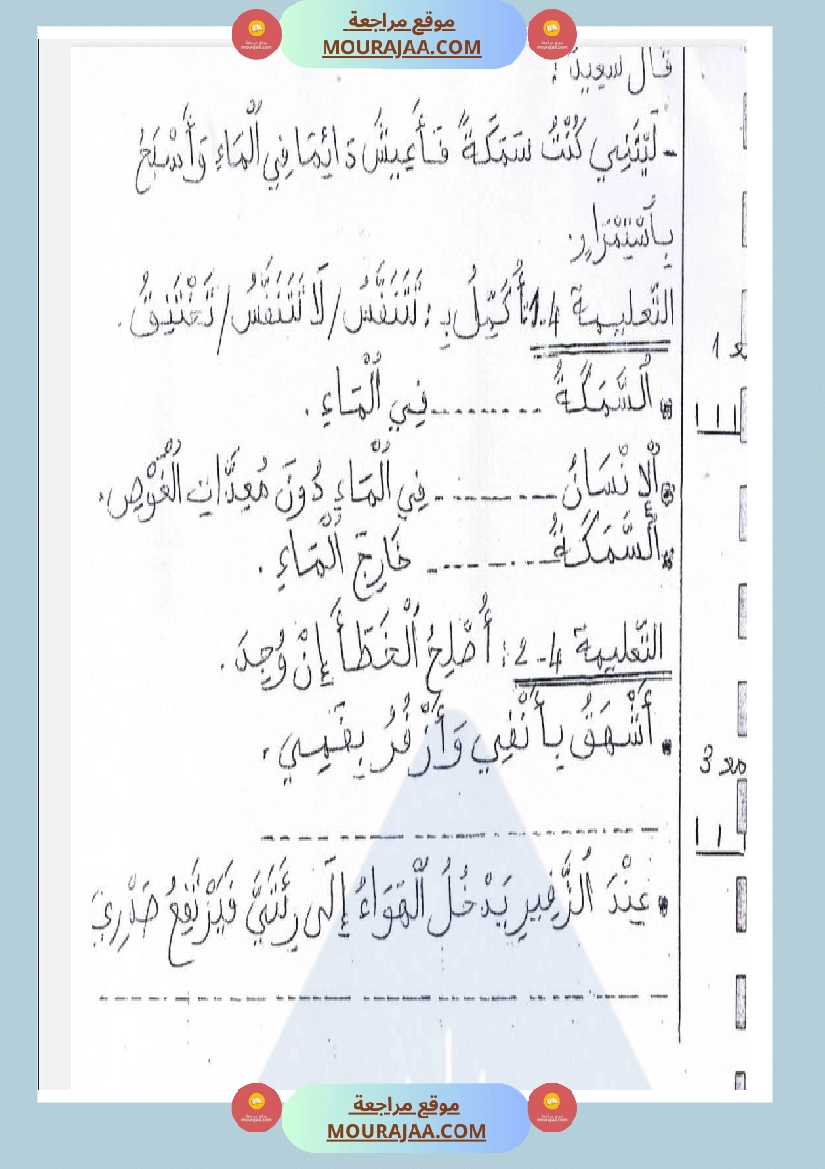 موقع مراجعة
MOURAJAA.COM
قَالَ سَعِيدٌ :
- لَيْتَنِي كُنْتُ سَمَكَةً فَأَعِيشُ دَائِمًا فِي الْمَاءِ وَأَسْبَحُ
بِاسْتِمْرَارٍ.
التّعليمة 1.4: أُكَمِّلُ بِـ : تَتَنَفَّسُ / لَا تَتَنَفَّسُ / تَخْتَنِقُ .
السَّمَكَةُ ......... فِي الْمَاءِ .
الْإِنْسَانُ ......... فِي الْمَاءِ دُونَ مُعِدَّاتِ الْغَوْصِ.
السَّمَكَةُ ......... خَارِجَ الْمَاءِ .
مع 1
التّعليمة 4-2 : أُصْلِحُ الْخَطَأَ إِنْ وُجِدَ .
أَشْهَقُ بِأَنْفِي وَأَزْفُرُ بِفَمِي .
مع 3
عِنْدَ الزَّفِيرِ يَدْخُلُ الْهَوَاءُ إِلَى رِئَتَيَّ فَيَرْتَفِعُ صَدْرِي
موقع مراجعة
MOURAJAA.COM